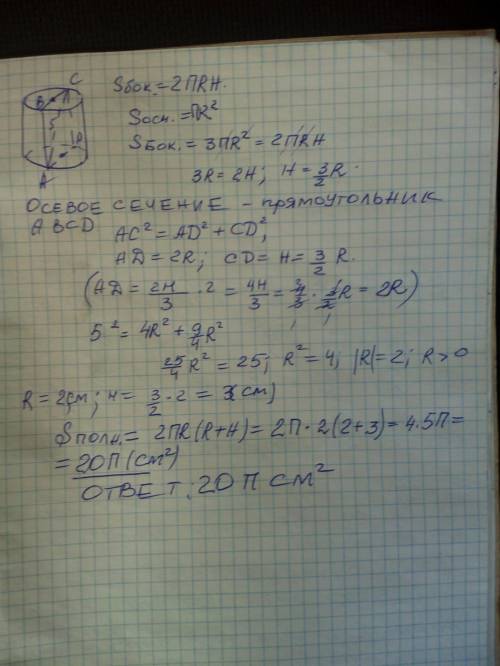 C
B
5
D
A
Sбок. = 2ПRH.
Sосн. = ПR²
Sбок. = 3ПR² = 2ПRH
3R = 2H; H = 3/2 R.
ОСЕВОЕ СЕЧЕНИЕ - ПРЯМОУГОЛЬНИК
ABCD
AC² = AD² + CD²;
AD = 2R; CD = H = 3/2 R.
(AD = 2H/3 · 2 = 4H/3 = 4/3 · 3/2 R = 2R)
5² = 4R² + 9/4 R²
25/4 R² = 25; R² = 4; |R| = 2; R > 0
R = 2см; H = 3/2 · 2 = 3(см)
Sполн. = 2ПR(R+H) = 2П·2(2+3) = 4·5П =
= 20П(см²)
ОТВЕТ: 20П см²